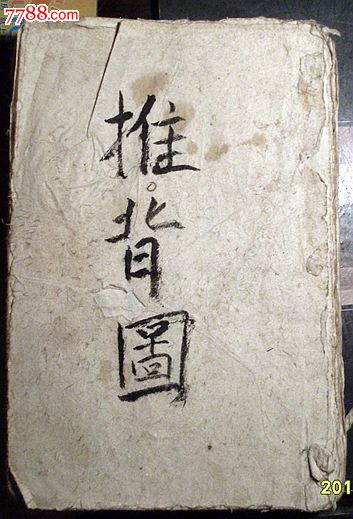 7788.com
推
背
圖
201